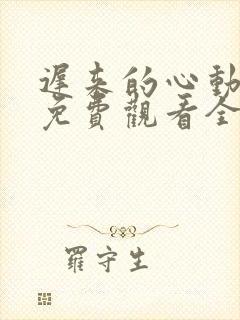 遲来的心動
免費觀看全
羅守生